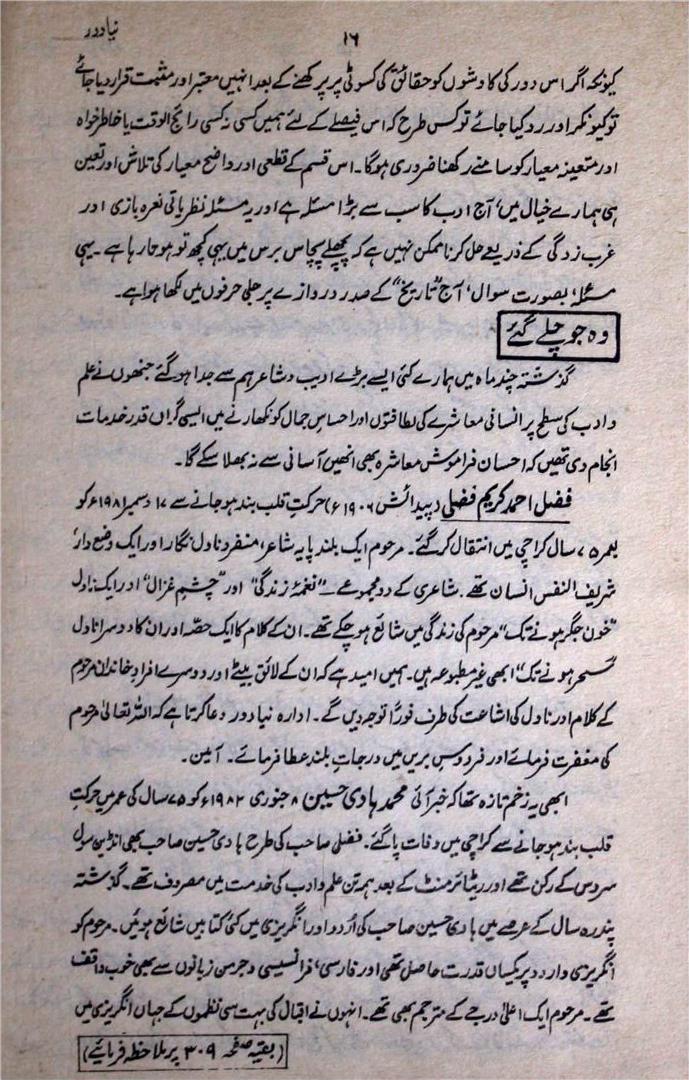 ۱۶
نیا دور
کیونکہ اگر اس دور کی کاوشوں کو حقائق کی کسوٹی پر پرکھنے کے بعد انہیں معتبر اور مثبت قرار دیا جائے
تو کیونکر اور رد کیا جائے تو کس طرح کہ اس فیصلے کے لئے ہمیں کسی نہ کسی رائج الوقت یا خاطر خواہ
اور متعینہ معیار کو سامنے رکھنا ضروری ہوگا۔ اس قسم کے قطعی اور واضح معیار کی تلاش اور تعین
ہی ہمارے خیال میں، آج ادب کا سب سے بڑا مسئلہ ہے اور یہ مسئلہ نظریاتی نعرہ بازی اور
غرب زدگی کے ذریعے حل کرنا ممکن نہیں ہے کہ پچھلے پچاس برس میں یہی کچھ تو ہوتا رہا ہے۔ یہی
مسئلہ، بصورت سوال، آج "تاریخ" کے صدر دروازے پر جلی حرفوں میں لکھا ہوا ہے۔
وہ جو چلے گئے
گذشتہ چند ماہ میں ہمارے کئی ایسے بڑے ادیب و شاعر ہم سے جدا ہو گئے جنھوں نے علم
و ادب کی سطح پر انسانی معاشرے کی لطافتوں اور احساسِ جمال کو نکھارنے میں ایسی گراں قدر خدمات
انجام دی تھیں کہ احسان فراموش معاشرہ بھی انھیں آسانی سے نہ بھلا سکے گا۔
فضل احمد کریم فضلی (پیدائش ۱۹۰۶ء) حرکتِ قلب بند ہو جانے سے ۱۷ دسمبر ۱۹۸۱ء کو
بعمر ۷۵ سال کراچی میں انتقال کر گئے۔ مرحوم ایک بلند پایہ شاعر، منفرد ناول نگار اور ایک وضع دار،
شریف النفس انسان تھے۔ شاعری کے دو مجموعے ــ "نغمۂ زندگی" اور "چشمِ غزال" اور ایک ناول
"خونِ جگر ہونے تک" مرحوم کی زندگی میں شائع ہو چکے تھے۔ ان کے کلام کا ایک حصّہ اور ان کا دوسرا ناول
"سحر ہونے تک" ابھی غیر مطبوعہ ہیں۔ ہمیں امید ہے کہ ان کے لائق بیٹے اور دوسرے افرادِ خاندان مرحوم
کے کلام اور ناول کی اشاعت کی طرف فوراً توجہ دیں گے۔ ادارہ نیا دور دعا کرتا ہے کہ اللہ تعالیٰ مرحوم
کی مغفرت فرمائے اور فردوسِ بریں میں درجاتِ بلند عطا فرمائے۔ آمین۔
ابھی یہ زخم تازہ تھا کہ خبر آئی محمد ہادی حسین ۸ جنوری ۱۹۸۲ء کو ۷۵ سال کی عمر میں حرکتِ
قلب بند ہو جانے سے کراچی میں وفات پا گئے۔ فضلی صاحب کی طرح ہادی حسین صاحب بھی انڈین سول
سروس کے رکن تھے اور ریٹائرمنٹ کے بعد ہمہ تن علم و ادب کی خدمت میں مصروف تھے۔ گذشتہ
پندرہ سال کے عرصے میں ہادی حسین صاحب کی اُردو اور انگریزی میں کئی کتابیں شائع ہوئیں۔ مرحوم کو
انگریزی و اردو پر یکساں قدرت حاصل تھی اور فارسی، فرانسیسی و جرمن زبانوں سے بھی خوب واقف
تھے۔ مرحوم ایک اعلیٰ درجے کے مترجم بھی تھے۔ انہوں نے اقبال کی بہت سی نظموں کے جہاں انگریزی میں
(بقیہ صفحہ ۳۰۹ پر ملاحظہ فرمائیے)